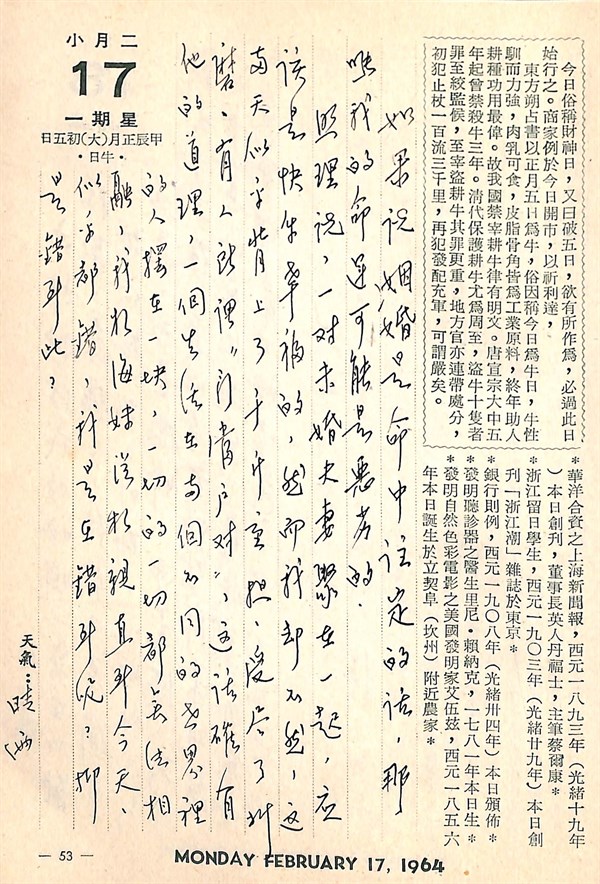 二月小
17
星期一
甲辰正月(大)初五日
・牛日・
今日俗稱財神日，又曰破五日，欲有所作爲，必過此日
始行之。商家例於今日開市，以祈利達，
東方朔占書以正月五日爲牛，俗因稱今日爲牛日，牛性
馴而力強，肉乳可食，皮脂骨角皆爲工業原料，終年助人
耕種功用最偉。故我國禁宰耕牛律有明文。唐宣宗大中五
年起曾禁殺牛三年。清代保護耕牛尤爲周至，盜牛十隻者
罪至絞監候，至宰盜耕牛其罪更重，地方官亦連帶處分，
初犯止杖一百流三千里，再犯發配充軍，可謂嚴矣。
＊華洋合資之上海新聞報，西元一八九三年（光緒十九年
）本日創刊，董事長英人丹福士，主筆蔡爾康＊
＊浙江留日學生，西元一九〇三年（光緒廿九年）本日創
刊「浙江潮」雜誌於東京＊
＊銀行則例，西元一九〇八年（光緒卅四年）本日頒佈＊
＊發明聽診器之醫生里尼・賴納克，一七八一年本日生＊
＊發明自然色彩電影之美國發明家艾伍玆，西元一八五六
年本日誕生於立契阜（坎州）附近農家＊
如果说姻婚是命中注定的话，那
唯我的命运可能是悪劣的．
照理说，一对未婚夫妻聚在一起，应
该是快乐幸福的，然而我却不然，这
两天似乎背上了千斤重担，受尽了折
磨．有人说谓"门当户对"，这话確有
他的道理，一個生活在两個不同的世界裡
的人摆在一块，一切的一切都无法相
融，我教海妹从教親直到今天、
似乎都錯，我是在錯到呢？抑
是錯到此？
天氣：晴
— 53 —
MONDAY FEBRUARY 17, 1964